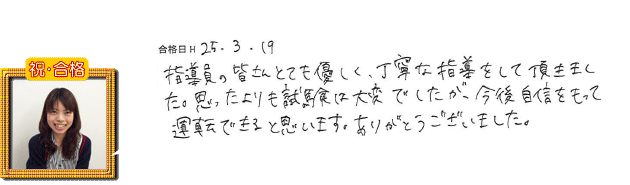 祝・合格
合格日 H 25.3.19
指導員の皆さんとても優しく、丁寧な指導をして頂きまし
た。思ったよりも試験は大変でしたが、今後自信をもって
運転できると思います。ありがとうございました。